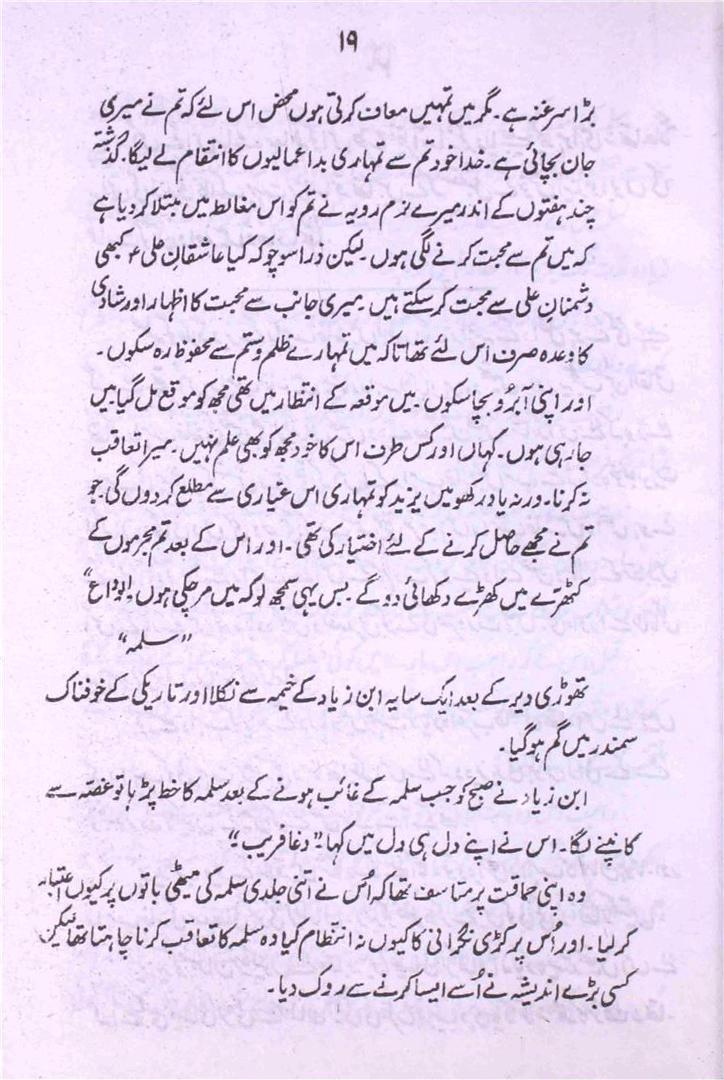 ۱۹
بڑا سرغنہ ہے۔ مگر میں تمہیں معاف کرتی ہوں محض اس لئے کہ تم نے میری
جان بچائی ہے۔ خدا خود تم سے تمہاری بداعمالیوں کا انتقام لے لیگا۔ گذشتہ
چند ہفتوں کے اندر میرے نرم رویہ نے تم کو اس مغالطہ میں مبتلا کر دیا ہے
کہ میں تم سے محبت کرنے لگی ہوں۔ لیکن ذرا سوچو کہ کیا عاشقانِ علیؑ کبھی
دشمنانِ علی سے محبت کر سکتے ہیں۔ میری جانب سے محبت کا اظہار اور شادی
کا وعدہ صرف اس لئے تھا تاکہ میں تمہارے ظلم و ستم سے محفوظ رہ سکوں۔
اور اپنی آبرو بچا سکوں۔ میں موقعہ کے انتظار میں تھی مجھ کو موقع مل گیا میں
جا رہی ہوں۔ کہاں اور کس طرف اس کا خود مجھ کو بھی علم نہیں۔ میرا تعاقب
نہ کرنا۔ ورنہ یاد رکھو میں یزید کو تمہاری اس عیاری سے مطلع کر دوں گی۔ جو
تم نے مجھے حاصل کرنے کے لئے اختیار کی تھی۔ اور اس کے بعد تم مجرموں کے
کٹھرے میں کھڑے دکھائی دو گے۔ بس یہی سمجھ لو کہ میں مر چکی ہوں۔ الوداع"
"سلمہ"
تھوڑی دیر کے بعد ایک سایہ ابن زیاد کے خیمہ سے نکلا اور تاریکی کے خوفناک
سمندر میں گم ہو گیا۔
ابن زیاد نے صبح کو جب سلمہ کے غائب ہونے کے بعد سلمہ کا خط پڑہا تو غصہ سے
کانپنے لگا۔ اس نے اپنے دل ہی دل میں کہا۔ "دغا فریب۔"
وہ اپنی حماقت پر متاسف تھا کہ اُس نے اتنی جلدی سلمہ کی میٹھی باتوں پر کیوں اعتبار
کر لیا۔ اور اُس پر کڑی نگرانی کا کیوں نہ انتظام کیا وہ سلمہ کا تعاقب کرنا چاہتا تھا لیکن
کسی بڑے اندیشہ نے اُسے ایسا کرنے سے روک دیا۔